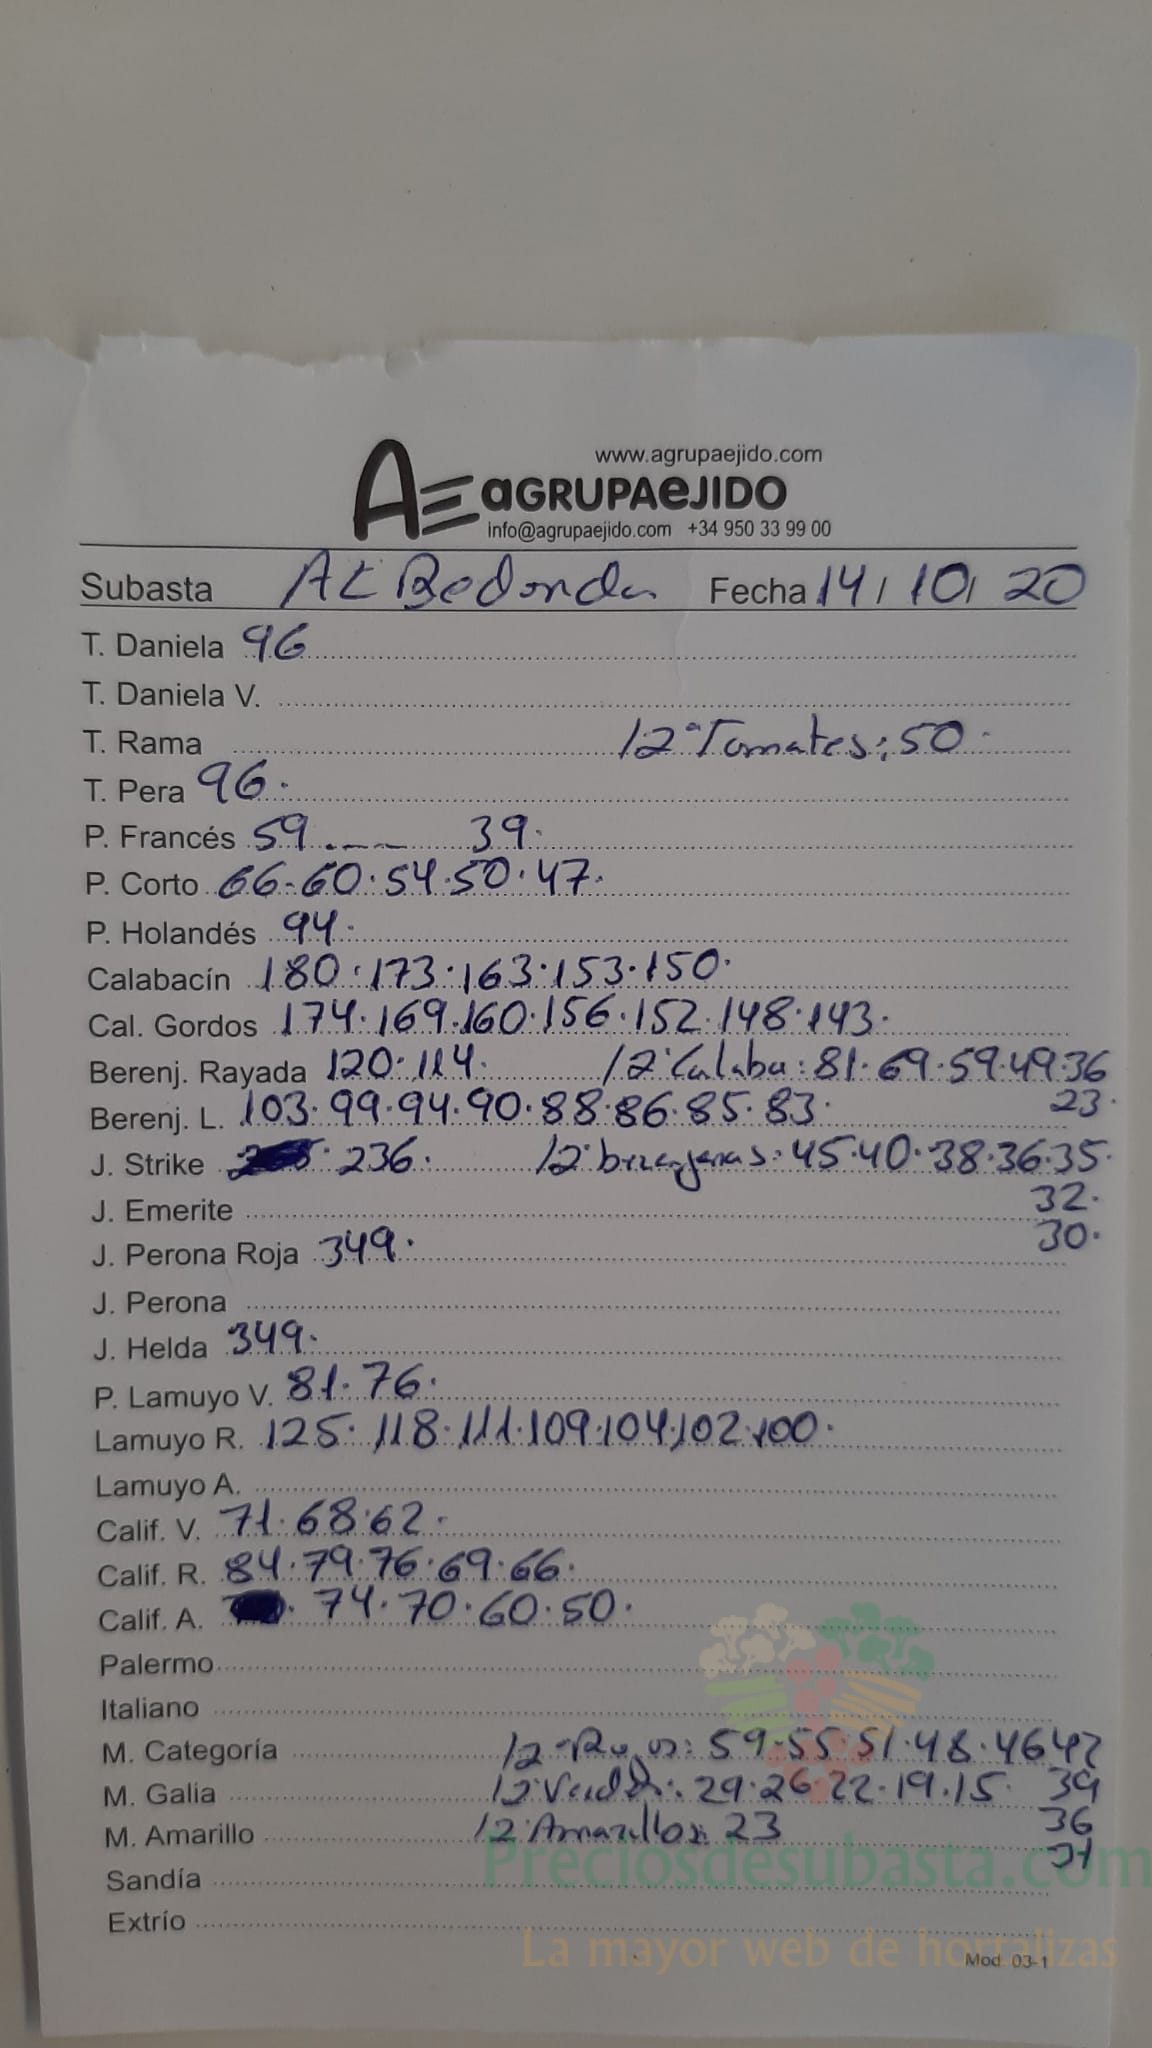 www.agrupaejido.com
AE aGRUPAeJIDO
info@agrupaejido.com +34 950 33 99 00
Subasta AL Bedonda Fecha 14/10/20
T. Daniela 96
T. Daniela V.
T. Rama 12ª Tomates: 50.
T. Pera 96.
P. Francés 59 . _ _ _ 39.
P. Corto 66-60.54.50.47.
P. Holandés 94.
Calabacín 180.173.163.153.150.
Cal. Gordos 174.169.160.156.152.148.143.
Berenj. Rayada 120.114. 12ª Calaba: 81.69.59.49.36
23.
Berenj. L. 103.99.94.90.88.86.85.83.
J. Strike 236. 12ª berenjenas: 45.40.38.36.35.
32.
J. Emerite
30.
J. Perona Roja 349.
J. Perona
J. Helda 349.
P. Lamuyo V. 81.76.
Lamuyo R. 125.118.111.109.104.102.100.
Lamuyo A.
Calif. V. 71.68.62.
Calif. R. 84.79.76.69.66.
Calif. A. 74.70.60.50.
Palermo
Italiano
M. Categoría 12ª Rojos: 59.55.51.48.46 42
M. Galia 12ª Verdes: 29.26.22.19.15 39
36
M. Amarillo 12ª Amarillos: 23
Preciosdesubasta.com
Sandía
Extrío
La mayor web de hortalizas
Mod. 03-1